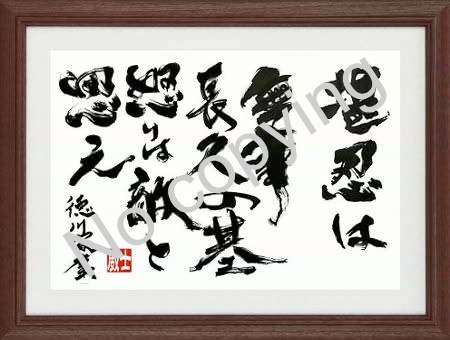 堪忍は
無事
長久の基
怒りは敵と
思え
徳川家康
No copying